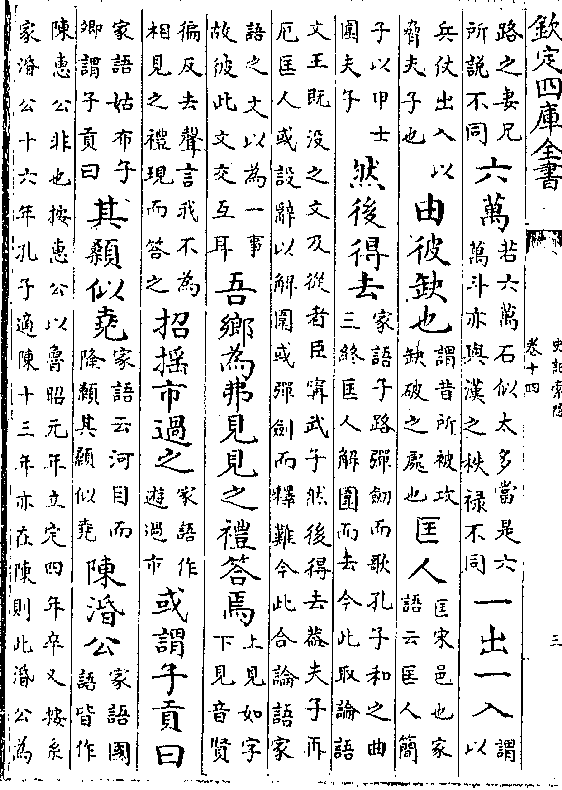 欽定四庫全書
史記索隠
卷十四
三
路之妻兄
所説不同
六萬
若六萬石似太多當是六
萬斗亦與漢之秩禄不同
一出一入
謂
以
兵仗出入以
脅夫子也
由彼缺也
謂昔所被攻
缺破之處也
匡人
匡宋邑也家
語云匡人簡
子以甲士
圍夫子
然後得去
家語子路彈劒而歌孔子和之曲
三終匡人解圍而去今此取論語
文王既没之文及從者臣甯武子然後得去葢夫子再
厄匡人或設辭以解圍或彈劍而釋難今此合論語家
語之文以為一事
故彼此文交互耳
吾鄉為弗見見之禮答焉
上見如字
下見音賢
徧反去聲言我不為
相見之禮現而答之
招摇市過之
家語作
遊過市
或謂子貢曰
家語姑布子
卿謂子貢曰
其顙似堯
家語云河目而
隆顙其顙似堯
陳湣公
家語國
語皆作
陳惠公非也按惠公以魯昭元年立定四年卒又按系
家湣公十六年孔子適陳十三年亦在陳則此湣公為